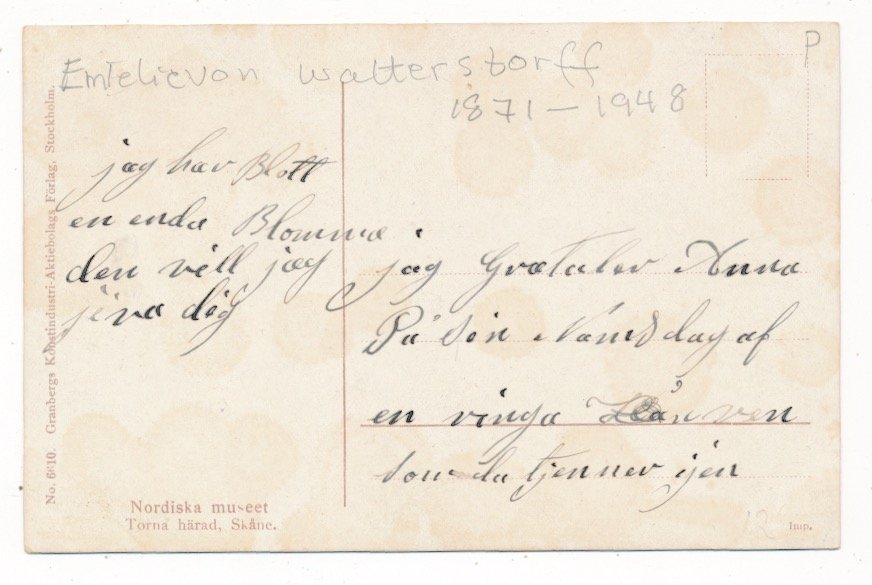 P
Emielievon Waltterstorff
1871 – 1948
jag har Blott
en enda Blomma
den vill jag
jiva dig
jag Gratuler Anna
På sin Namsdag af
en ringa ven
som du tjenner ijen
No. 6610. Granbergs Konstindustri-Aktiebolags Förlag, Stockholm.
Nordiska museet
Torna härad, Skåne.
12
Imp.